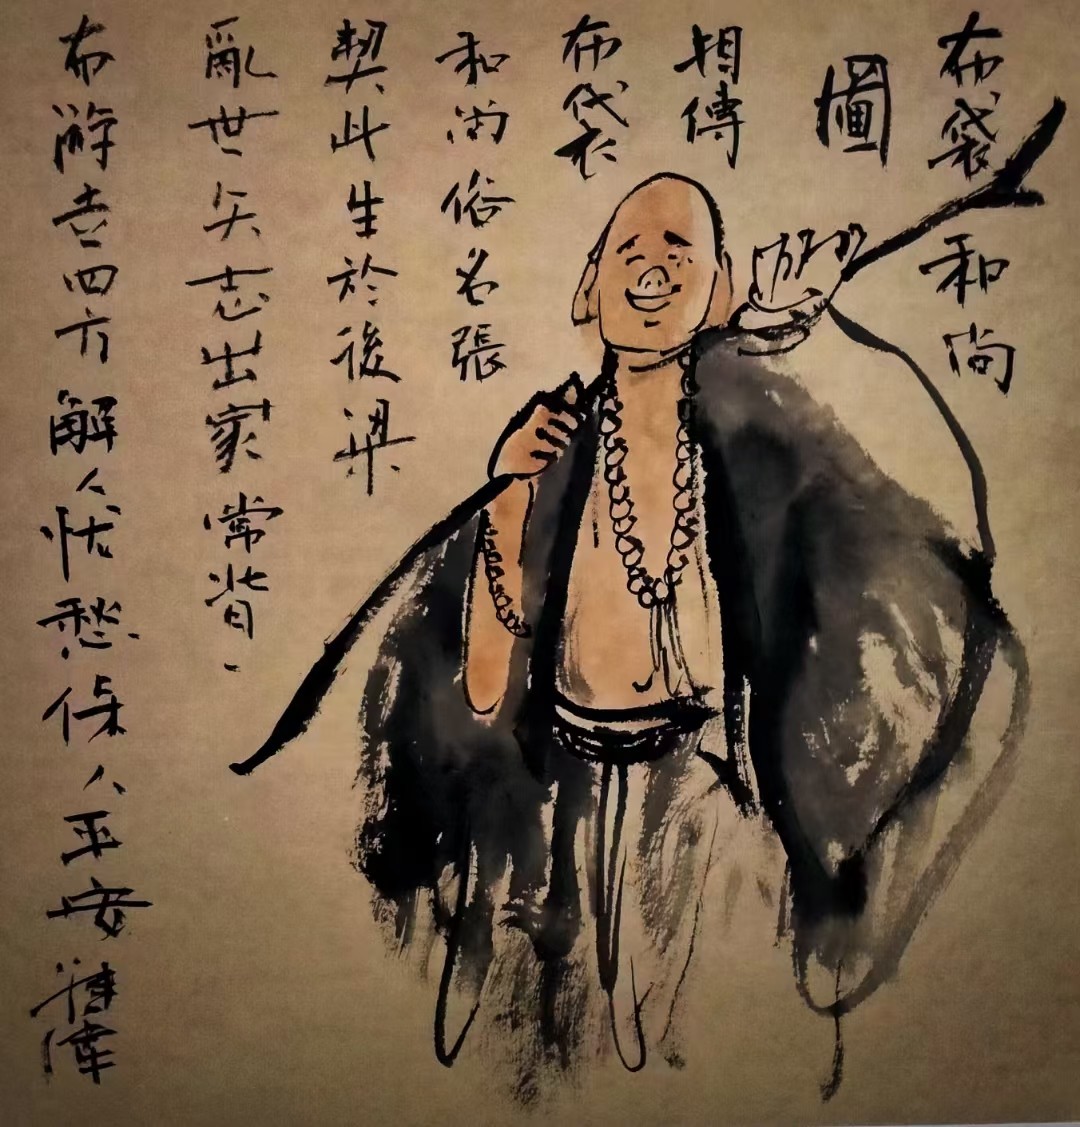 布袋和尚
圖
相傳
布袋
和尚俗名張
契此生於後梁
亂世矢志出家常背、
布游吉四方解人忧愁保人平安